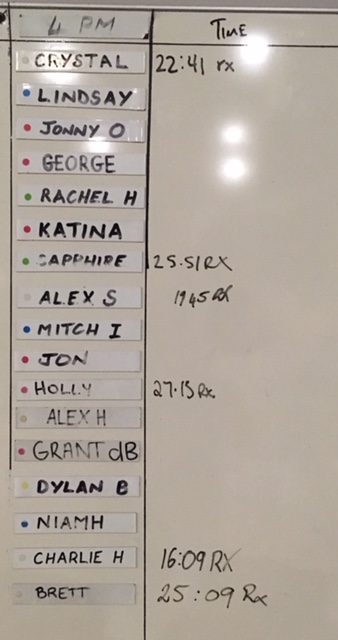 4 PM TIME
CRYSTAL 22:41 rx
LINDSAY
JONNY O
GEORGE
RACHEL H
KATINA
SAPPHIRE 25.51 RX
ALEX S 1945 RX
MITCH I
JON
HOLLY 27.15 Rx
ALEX H
GRANT dB
DYLAN B
NIAMH
CHARLIE H 16:09 RX
BRETT 25:09 Rx